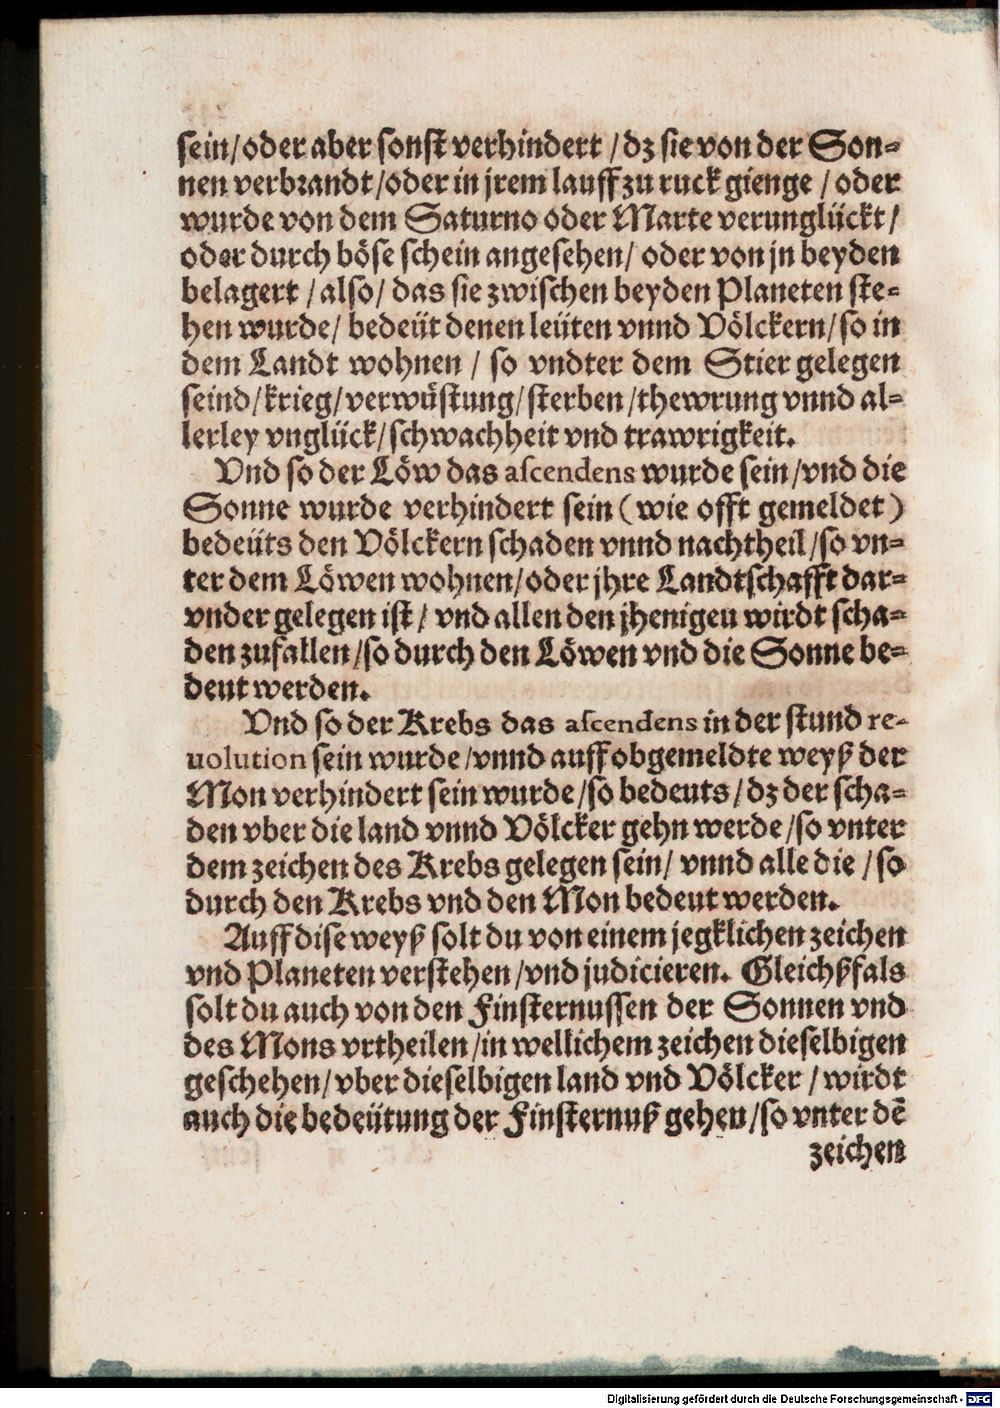 sein/oder aber sonst verhindert/dz sie von der Son-
nen verbrandt/oder in jrem lauff zu ruck gienge/oder
wurde von dem Saturno oder Marte verunglückt/
oder durch böse schein angesehen/ oder von jn beyden
belagert/also/ das sie zwischen beyden Planeten ste-
hen wurde/ bedeüt denen leüten vnnd Völckern/so in
dem Landt wohnen/ so vndter dem Stier gelegen
seind/krieg/verwüstung/sterben/thewrung vnnd al-
lerley vnglück/schwachheit vnd trawrigkeit.
Vnd so der Löw das ascendens wurde sein/vnd die
Sonne wurde verhindert sein (wie offt gemeldet)
bedeüts den Völckern schaden vnnd nachtheil/so vn-
ter dem Löwen wohnen/oder jhre Landtschafft dar-
vnder gelegen ist/ vnd allen den jhenigeu wirdt scha-
den zufallen/so durch den Löwen vnd die Sonne be-
deut werden.
Vnd so der Krebs das ascendens in der stund re-
uolution sein wurde/vnnd auff obgemeldte weyß der
Mon verhindert sein wurde/so bedeuts/dz der scha-
den vber die land vnnd Völcker gehn werde/so vnter
dem zeichen des Krebs gelegen sein/ vnnd alle die/so
durch den Krebs vnd den Mon bedeut werden.
Auff dise weyß solt du von einem jegklichen zeichen
vnd Planeten verstehen/vnd judicieren. Gleichßfals
solt du auch von den Finsternussen der Sonnen vnd
des Mons vrtheilen/in wellichem zeichen dieselbigen
geschehen/vber dieselbigen land vnd Völcker/wirdt
auch die bedeütung der Finsternuß gehen/so vnter dē
zeichen
Digitalisierung gefördert durch die Deutsche Forschungsgemeinschaft - DFG